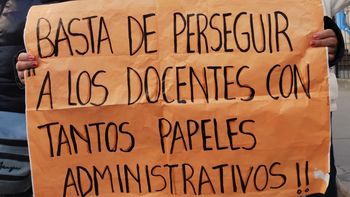 BASTA DE PERSEGUIR
"A LOS DOCENTES CON
TANTOS PAPELES
ADMINISTRATIVOS!!